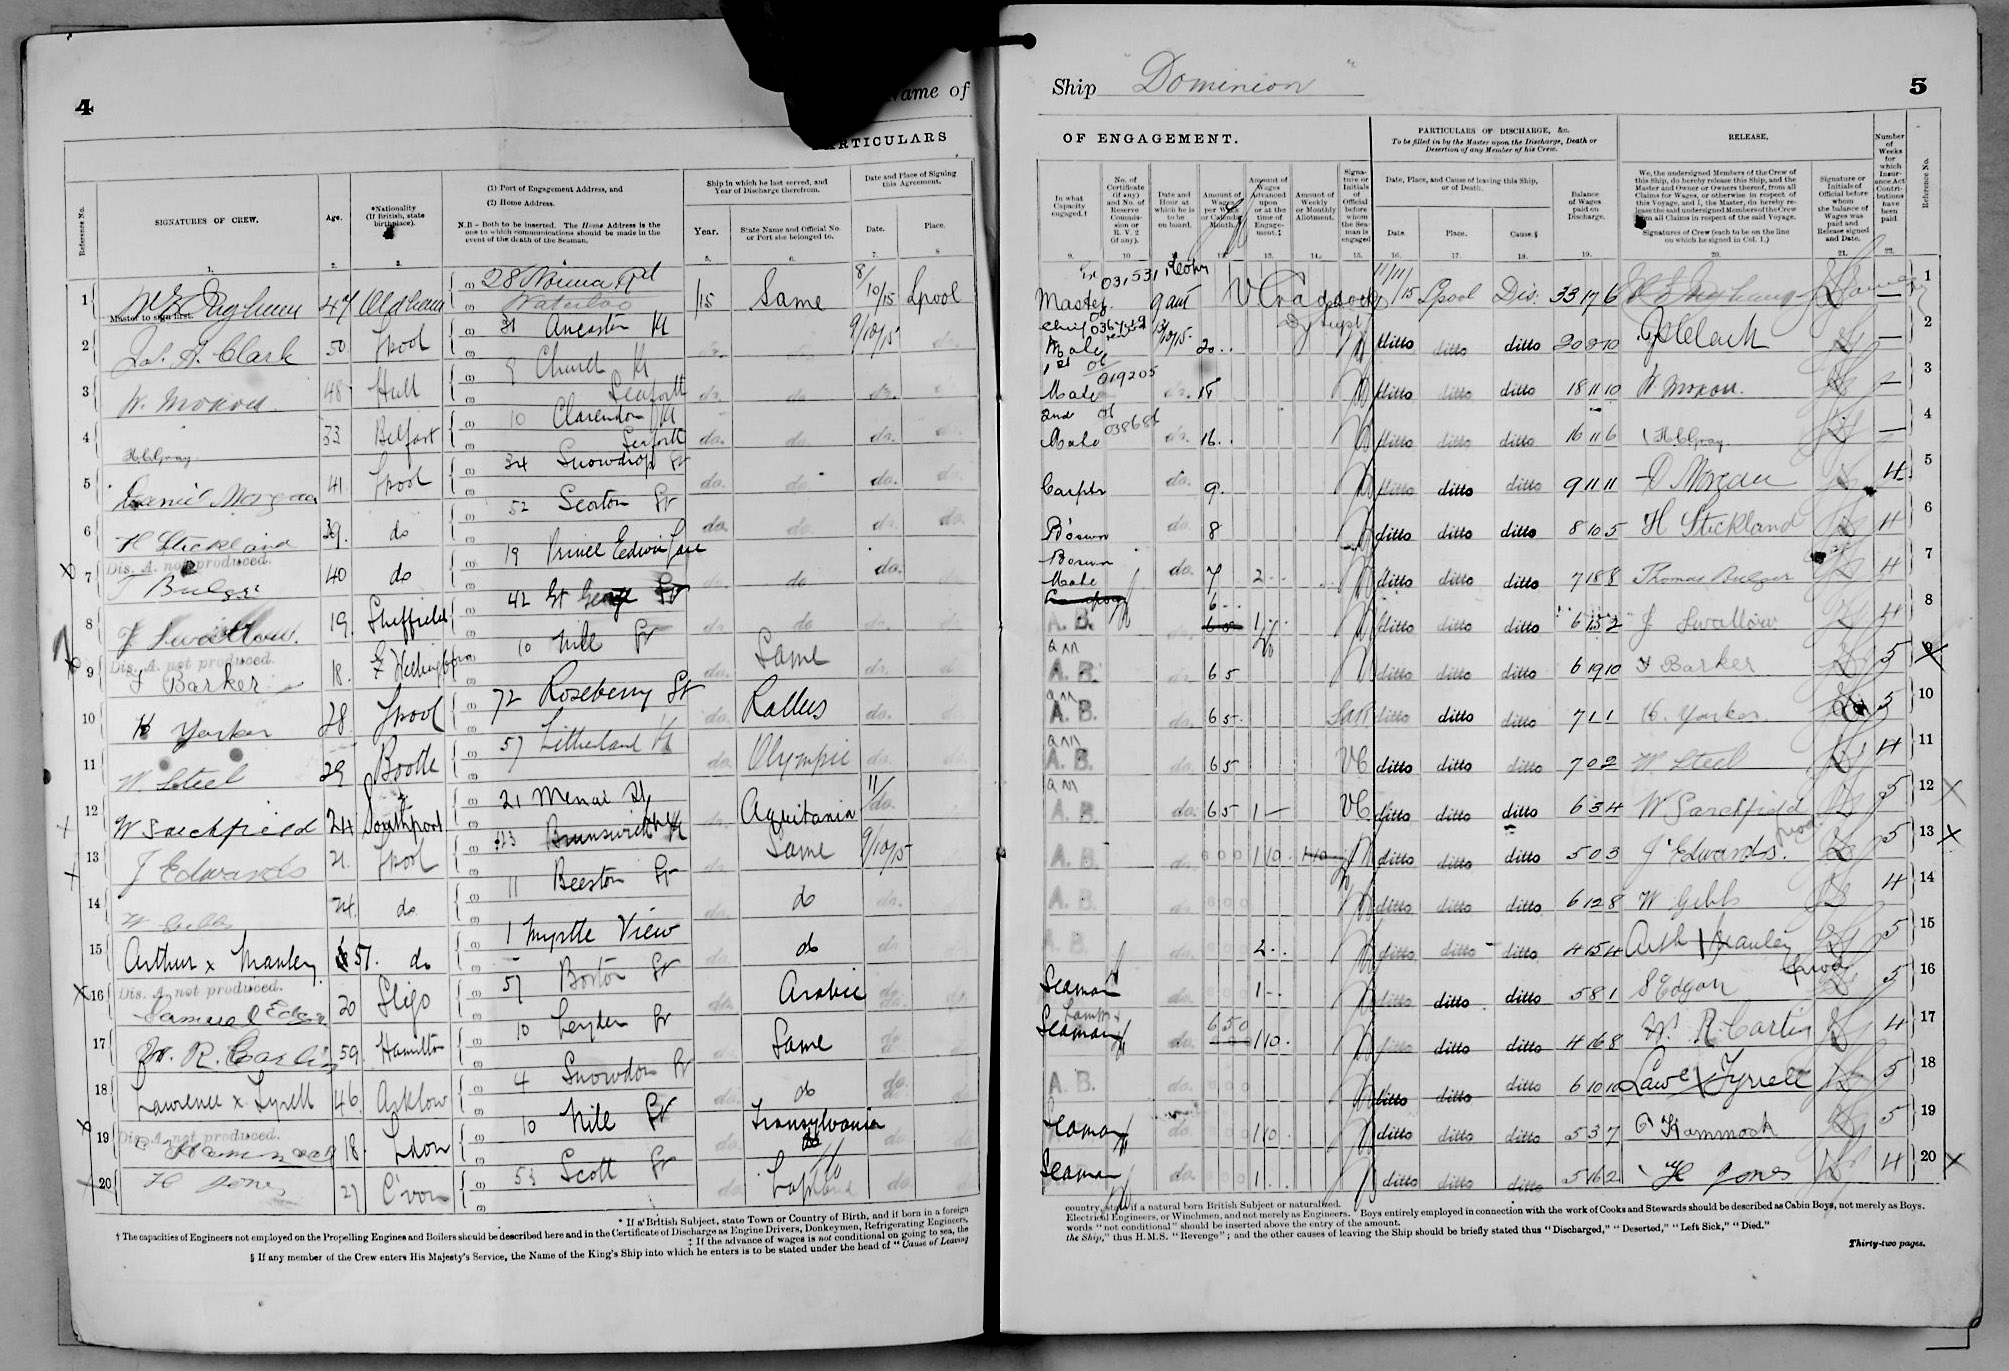 4
Name of
PARTICULARS
Reference No.
SIGNATURES OF CREW.
Age.
*Nationality
(If British, state
birthplace).
(1) Port of Engagement Address, and
(2) Home Address.
N.B - Both to be inserted. The Home Address is the
one to which communications should be made in the
event of the death of the Seaman.
Ship in which he last served, and
Year of Discharge therefrom.
Year.
State Name and Official No.
or Port she belonged to.
Date and Place of Signing
this Agreement.
Date.
Place.
1. 2. 3. 4. 5. 6. 7. 8.
1 47 Oldham 28 Rd 15 Same 8/10/15 Lpool
Master to sign first. Waterloo
2 Jas. A. Clark 50 Lpool 31 Ancaster Rd 9/10/15
3 W. Moxon 48 Hull 9 Church Rd Seaforth do. do. do.
4 H C Gray 33 Belfast 10 Clarendon Rd Seaforth do. do. do.
5 Daniel Morgan 41 Lpool 34 Snowdrop St do. do. do.
6 H Stickland 39. do 52 Seaton St do. do. do. do.
Dis. A. not produced.
x 7 T Bulger 40 do 19 Prince Edwin Lane do. do do.
8 J Swallow. 19. Sheffield 42 St George St do. do do.
Dis. A. not produced.
x 9 F Barker 18. 10 Nile St do. Same do.
10 H Yorker 28. Lpool 72 Roseberry St do. do.
11 W. Steel 29 Bootle 57 Litherland Rd do. Olympic do.
12 W Sarchfield 24 Southport 21 Menai St Aquitania 11/do.
13 J Edwards 21. Lpool Brunswick Same 9/10/15
14 W Gibbs 24. do. 11 Beeston St do. do do.
15 Arthur x Manley 51. do 1 Myrtle View do. do do.
Dis. A. not produced.
x 16 Samuel Edgar 20 Sligo 57 Boston St do. Arabic do.
17 R. Carlin 59. Hamilton 10 Leyden St do. Same do.
18 Lawrence x Tyrell 46. Arklow 4 Snowdon St do. do do.
Dis. A. not produced.
x 19 Hammock 18. Ldon 10 Nile St do. Transylvania do.
20 H Jones 27 C'von 53 Scott St do. Lapland do.
* If a British Subject, state Town or Country of Birth, and if born in a foreign
† The capacities of Engineers not employed on the Propelling Engines and Boilers should be described here and in the Certificate of Discharge as Engine Drivers, Donkeymen, Refrigerating Engineers,
‡ If the advance of wages is not conditional on going to sea, the
§ If any member of the Crew enters His Majesty's Service, the Name of the King's Ship into which he enters is to be stated under the head of "Cause of Leaving
Ship "Dominion"
5
OF ENGAGEMENT.
PARTICULARS OF DISCHARGE, &c.
To be filled in by the Master upon the Discharge, Death or
Desertion of any Member of his Crew.
RELEASE.
In what
Capacity
engaged.†
No. of
Certificate
(if any)
and No. of
Reserve
Commis-
sion or
R. V. 2
(if any).
Date and
Hour at
which he is
to be
on board.
Amount of
Wages
per Week
or Calendar
Month.
Amount of
Wages
Advanced
upon
or at the
time of
Engage-
ment.‡
Amount of
Weekly
or Monthly
Allotment.
Signa-
ture or
Initials
of
Official
before
whom
the Sea-
man is
engaged
Date, Place, and Cause of leaving this Ship,
or of Death.
Date.
Place.
Cause.§
Balance
of Wages
paid on
Discharge.
We, the undersigned Members of the Crew of
this Ship, do hereby release this Ship, and the
Master and Owner or Owners thereof, from all
Claims for Wages, or otherwise in respect of
this Voyage, and I, the Master, do hereby re-
lease the said undersigned Members of the Crew
from all Claims in respect of the said Voyage.
Signatures of Crew (each to be on the line
on which he signed in Col. 1.)
Signature or
Initials of
Official before
whom
the balance of
Wages was
paid and
Release signed
and Date.
Number
of
Weeks
for
which
Insur-
ance Act
Contri-
butions
have
been
paid.
Reference No.
9. 10 11. 12. 13. 14. 15. 16. 17. 18. 19. 20. 21. 22.
Master. 031531 9 am V Craddock 11/11/15 Lpool Dis. 33 17 6 — 1
Chief Mate 20 ditto ditto ditto 20 8 10 — 2
1st Mate 019205 do. 18 ditto ditto ditto 18 11 10 W. Moxon. — 3
2nd Mate 038686 do. 16 ditto ditto ditto 16 11 6 H C Gray — 4
Carptr do. 9. ditto ditto ditto 9 11 11 D Morgan 4 5
Bosun do. 8 ditto ditto ditto 8 10 5 H Stickland 4 6
Bosun Mate do. 7 2 ditto ditto ditto 7 18 8 Thomas Bulger 4 7
A. B. 6 1 ditto ditto ditto J Swallow 4 8
A. B. 6 5 ditto ditto ditto 6 19 10 F Barker 5 9
A. B. do. 6 5 ditto ditto ditto 7 1 1 H. Yorker 5 10
A. B. do. 6 5 VC ditto ditto ditto 7 0 2 W Steel 4 11
A. B. do. 6 5 1 — VC ditto ditto ditto 6 3 4 W Sarchfield 5 12 x
A. B. 1 10 ditto ditto ditto 5 0 3 J Edwards. 5 13 x
A. B. ditto ditto ditto 6 12 8 W Gibbs 4 14
A. B. 2 ditto ditto ditto 4 15 4 Arth x Manley 5 15
Seaman do. 1 ditto ditto ditto 5 8 1 S Edgar 5 16
Lamps & Seaman do. 6 5 0 1 10 ditto ditto ditto 4 16 8 R. Carlin 4 17
A. B. do. ditto ditto ditto 6 10 10 Lawce x Tyrrell 5 18
Seaman do. 1 10 ditto ditto ditto 5 3 7 Hammock 5 19
Seaman do. 1 ditto ditto ditto 5 16 2 H Jones 4 20 x
country, state if a natural born British Subject or naturalized.
Electrical Engineers, or Winchmen, and not merely as Engineers. Boys entirely employed in connection with the work of Cooks and Stewards should be described as Cabin Boys, not merely as Boys.
words "not conditional" should be inserted above the entry of the amount.
the Ship," thus H.M.S. "Revenge"; and the other causes of leaving the Ship should be briefly stated thus "Discharged," "Deserted," "Left Sick," "Died."
Thirty-two pages.